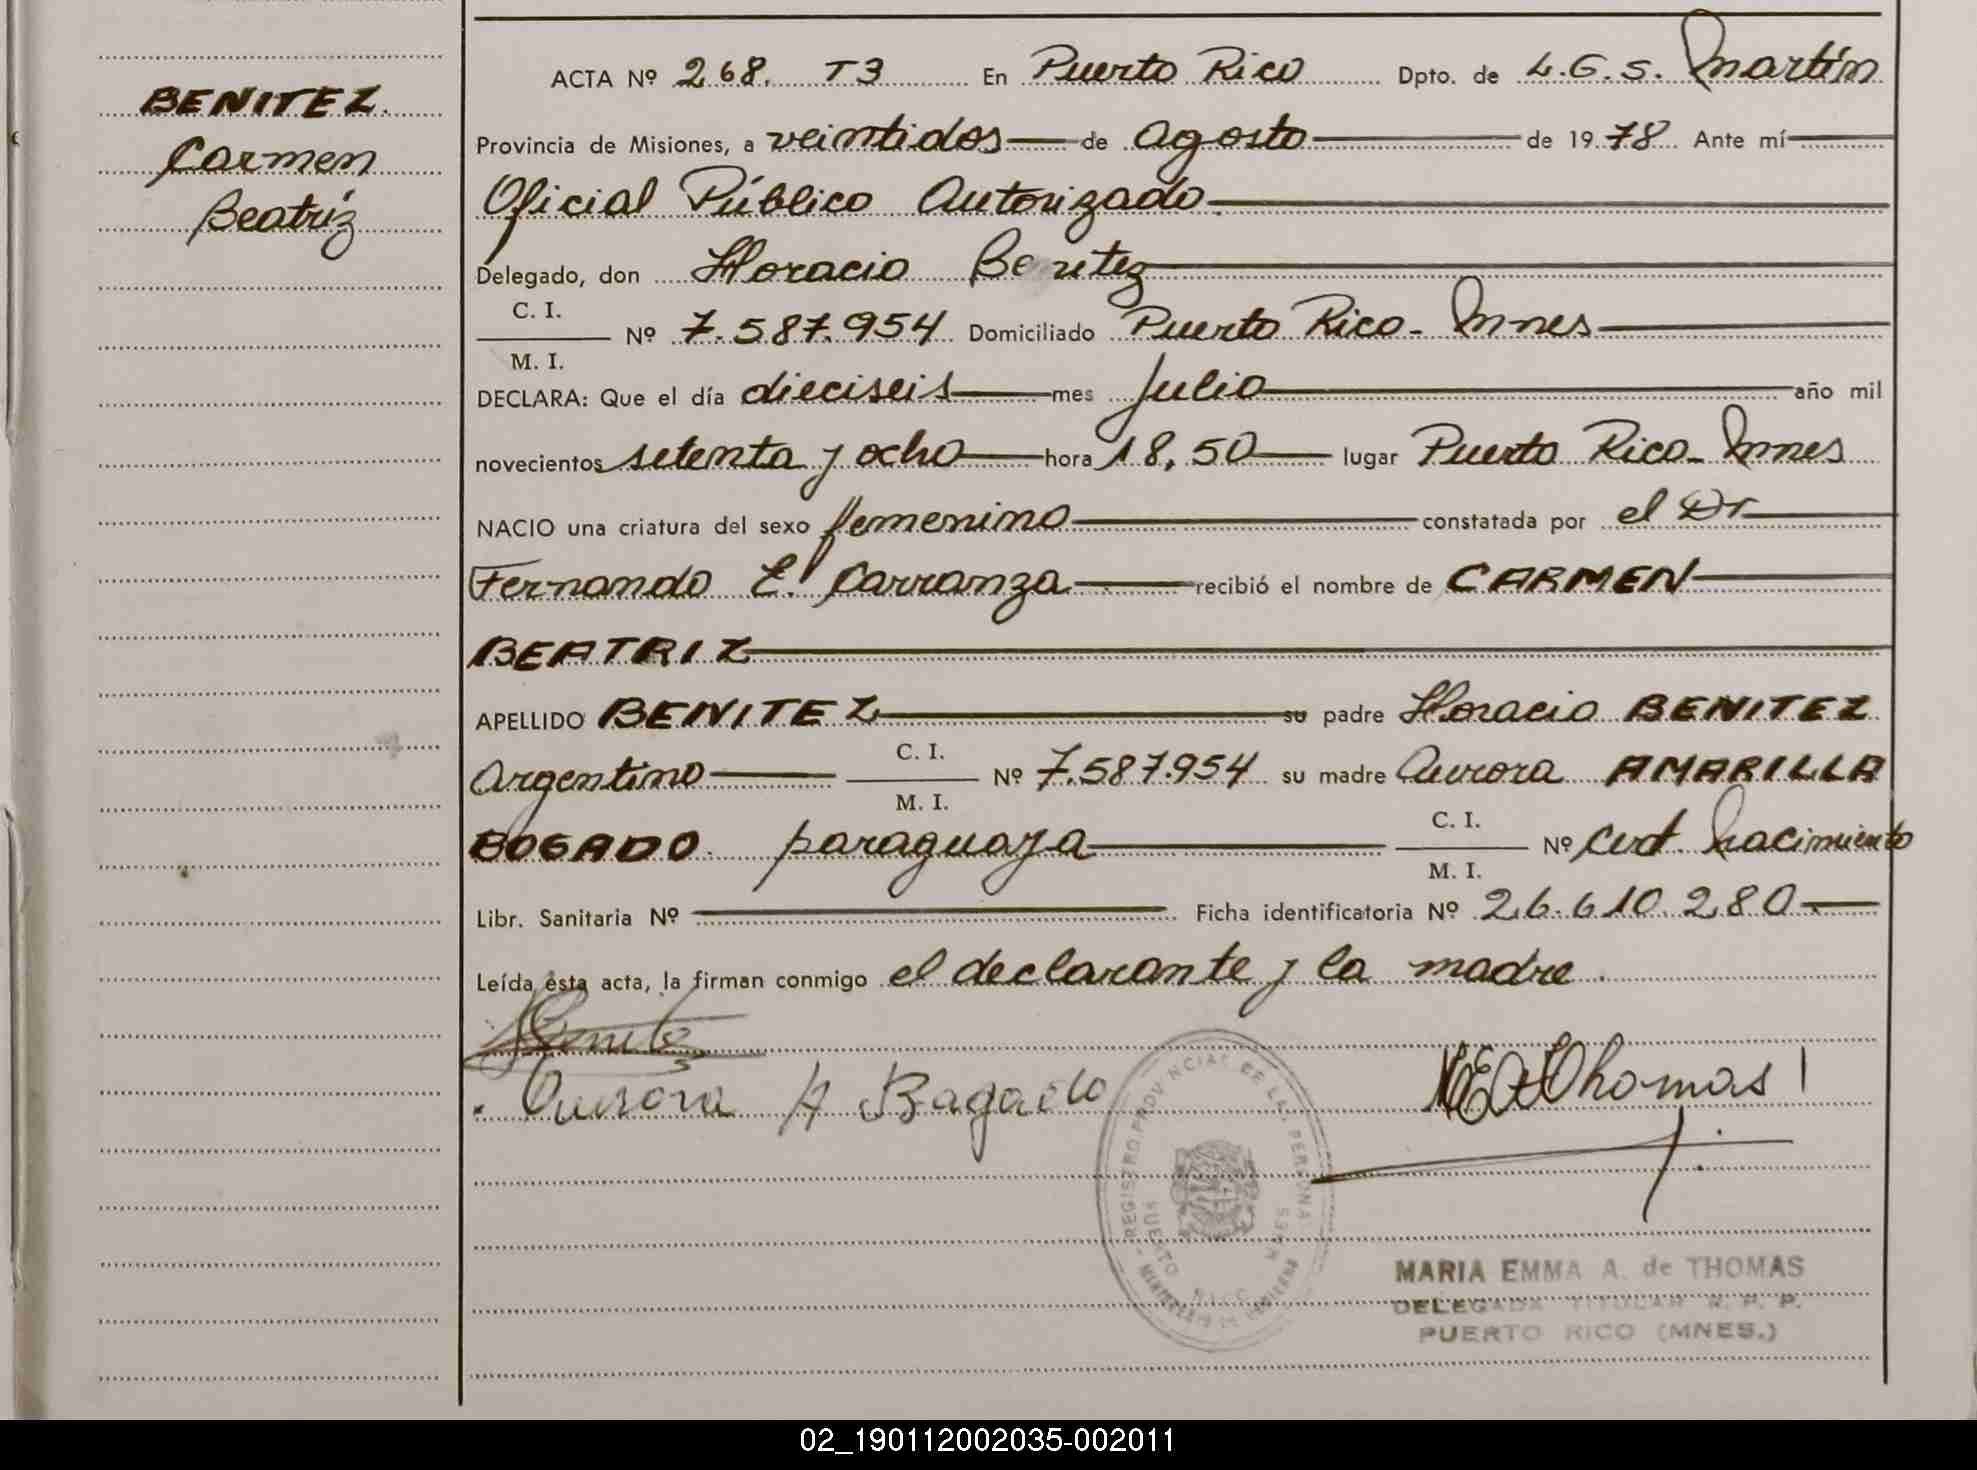 BENITEZ
Carmen
Beatríz
ACTA Nº 268. T3 En Puerto Rico Dpto. de L.G.S. Martín
Provincia de Misiones, a veintidos de Agosto de 1978 Ante mí
Oficial Público Autorizado
Delegado, don Horacio Benitez
C. I.
M. I.
Nº 7.587.954 Domiciliado Puerto Rico - Mnes
DECLARA: Que el día dieciseis mes Julio año mil
novecientos setenta y ocho hora 18,50 lugar Puerto Rico - Mnes
NACIO una criatura del sexo femenino constatada por el Dr
Fernando E. Carranza recibió el nombre de CARMEN
BEATRIZ
APELLIDO BENITEZ su padre Horacio BENITEZ
Argentino C. I. M. I. Nº 7.587.954 su madre Aurora AMARILLA
BOGADO paraguaya C. I. M. I. Nº Cert. Nacimiento
Libr. Sanitaria Nº Ficha identificatoria Nº 26.610.280
Leída ésta acta, la firman conmigo el declarante y la madre.
Aurora A Bagado
MEAThomas
REGISTRO PROVINCIAL DE LAS PERSONAS
PUERTO RICO MNES
MINISTERIO DE GOBIERNO
MARIA EMMA A. de THOMAS
DELEGADA TITULAR R. P. P.
PUERTO RICO (MNES.)
02_190112002035-002011